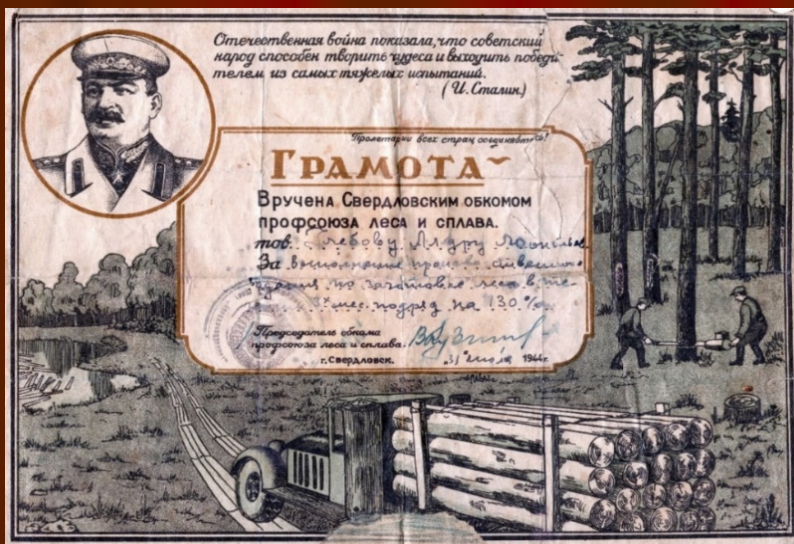 Отечественная война показала, что советский
народ способен творить чудеса и выходить победи-
телем из самых тяжелых испытаний.
(И. Сталин)
Пролетарии всех стран соединяйтесь!
ГРАМОТА
Вручена Свердловским обкомом
профсоюза леса и сплава.
тов.
За выполнение производственного
по заготовке леса в те-
мес. подряд на 130%
Председатель обкома
профсоюза леса и сплава.
г. Свердловск. 31 1944г.